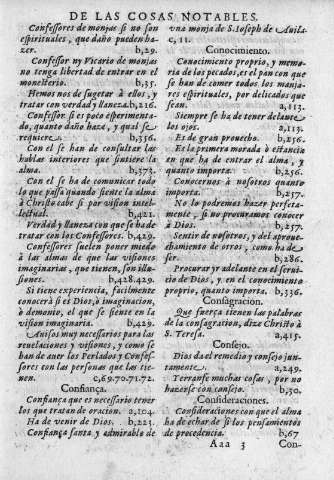 DE LAS COSAS NOTABLES.
Confessores de monjas si no son
espirituales, que daño pueden ha-
zer. b,29.
Confessor ny Vicario de monjas
no tenga libertad de entrar en el
monesterio. b,35.
Hemos nos de sugetar à ellos, y
tratar con verdad y llaneza. b,216.
Confessor si es poco esperimenta-
do, quanto daño haze, y qual se
requiere. b,356.
Con el se han de consultar las
hablas interiores que sintiere la
alma. b,373.
Con el se ha de comunicar todo
lo que passa quando siente la alma
à Christo cabe si por vision intel-
lectual. b,421.
Verdad y llaneza con que se ha de
tratar con los Confessores. b,429.
Confessores suelen poner miedo
à las almas de que las visiones
imaginarias, que tienen, son illu-
siones. b,428.429.
Si tiene experiencia, facilmente
conocerà si es Dios, ò imaginacion,
ò demonio, el que se siente en la
vision imaginaria. b,429.
Auisos muy necessarios para las
reuelaciones y visiones, y como se
han de auer los Perlados y Confes-
sores con las personas que las tie-
nen. c,69.70.71.72.
Confiança.
Confiança que es necessario tener
los que tratan de oracion. a,104.
Ha de venir de Dios. b,223.
Confiança santa y admirable de
vna monja de S. Ioseph de Auila.
c,11.
Conocimiento.
Conocimiento proprio, y memo-
ria de los pecados, es el pan con que
se han de comer todos los manja-
res espirituales, por delicados que
sean. a,113.
Siempre se ha de tener delante
los ojos. a,113.
Es de gran prouecho. b,256.
Es la primera morada ò estancia
en que ha de entrar el alma, y
quanto importa. b,256.
Conocernos à nosotros quanto
importa. b,257.
No lo podremos hazer perfeta-
mente, si no procuramos conocer
à Dios. b,257.
Sentir de nosotros, y del aproue-
chamiento de otros, como ha de
ser. b,286.
Procurar yr adelante en el serui-
cio de Dios, y en el conocimiento
proprio, quanto importa. b,336.
Consagracion.
Que fuerça tienen las palabras
de la consagracion, dize Christo à
S. Teresa. a,415.
Consejo.
Dios da el remedio y consejo jun-
tamente. a,249.
Yerranse muchas cosas, por no
hazerse con consejo. b,50.
Consideraciones.
Consideraciones con que el alma
ha de echar de si los pensamientos
de procedencia. b,67
Aaa 3 Con-